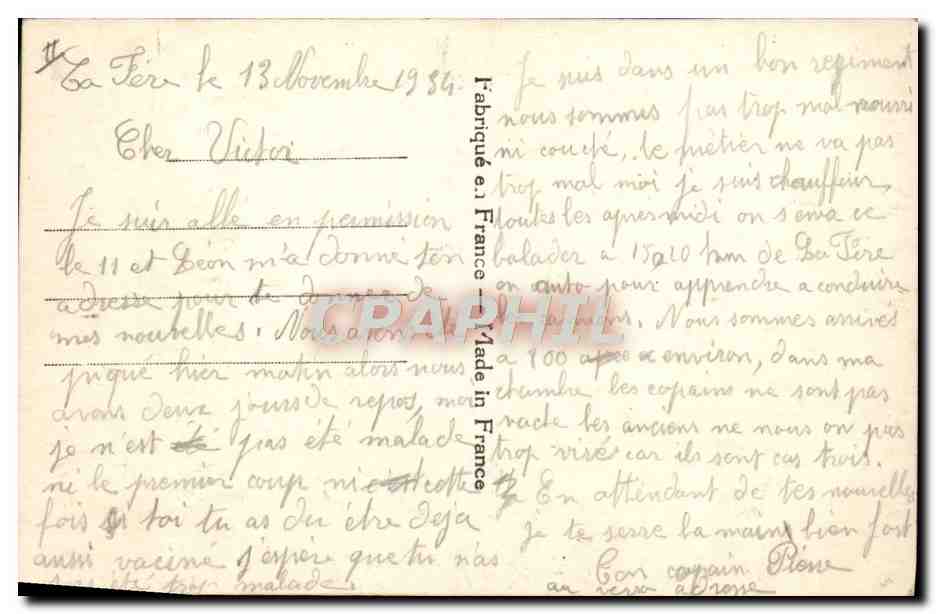 La Fére le 13 Novembre 1934
Cher Victor
Je suis allé en permission
le 11 et Léon m'a donné ton
adresse pour te donner de
mes nouvelles. Nous avons été
piqué hier matin alors nous
avons deux jours de repos, moi
je n'est pas été malade
ni le premier coup ni cette
fois si toi tu as du étre deja
aussi vaciné j'espère que tu n'as
pas été trop malade.
Je suis dans un bon regiment
nous sommes pas trop mal nourri
ni couché, le métier ne va pas
trop mal moi je suis chauffeur,
toutes les apres midi on s'en va ce
balader a 15 a 20 km de La Fére
en auto pour apprendre a conduire
les camions. Nous sommes arrivés
a 800 a environ, dans ma
chambre les copains ne sont pas
vache les anciens ne nous on pas
trop visé car ils sont cas trois.
En attendant de tes nouvelles
je te serre la main bien fort
Ton copain Pierre
au verso adresse
Fabriqué en France - Made in France
CPAPHIL